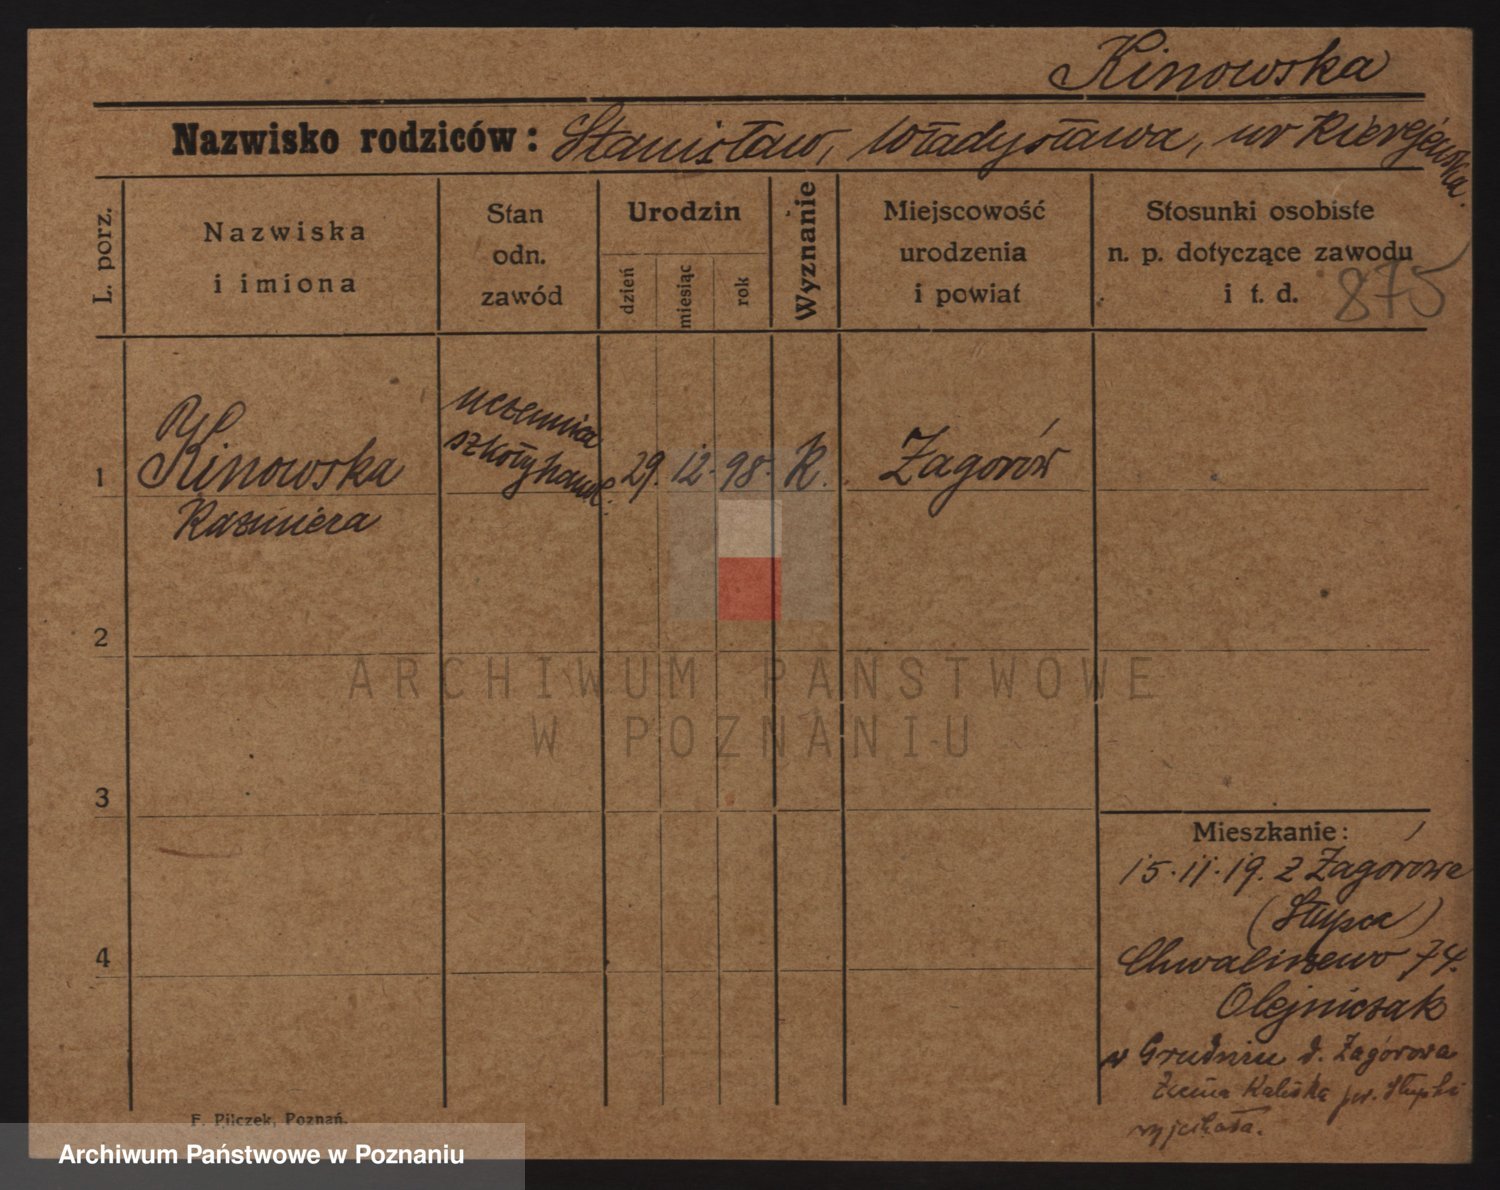 Kinowska
Nazwisko rodziców: Stanisław, Władysława, ur Kierejewska.
L. porz.
Nazwiska
i imiona
Stan
odn.
zawód
Urodzin
dzień
miesiąc
rok
Wyznanie
Miejscowość
urodzenia
i powiat
Stosunki osobiste
n. p. dotyczące zawodu
i t. d.
875
1
Kinowska
Kazimiera
uczennica
szkoły handl.
29. 12. 98. K.
Zagorów
2
3
4
Mieszkanie:
15.11.19. z Zagórowa
(Słupca)
Chwaliszewo 74.
Olejniczak
w Grudniu d. Zagórowa
Ziemia Kaliska pw. Słupski
wyjechała.
F. Pilczek, Poznań.
ARCHIWUM PAŃSTWOWE
W POZNANIU
Archiwum Państwowe w Poznaniu